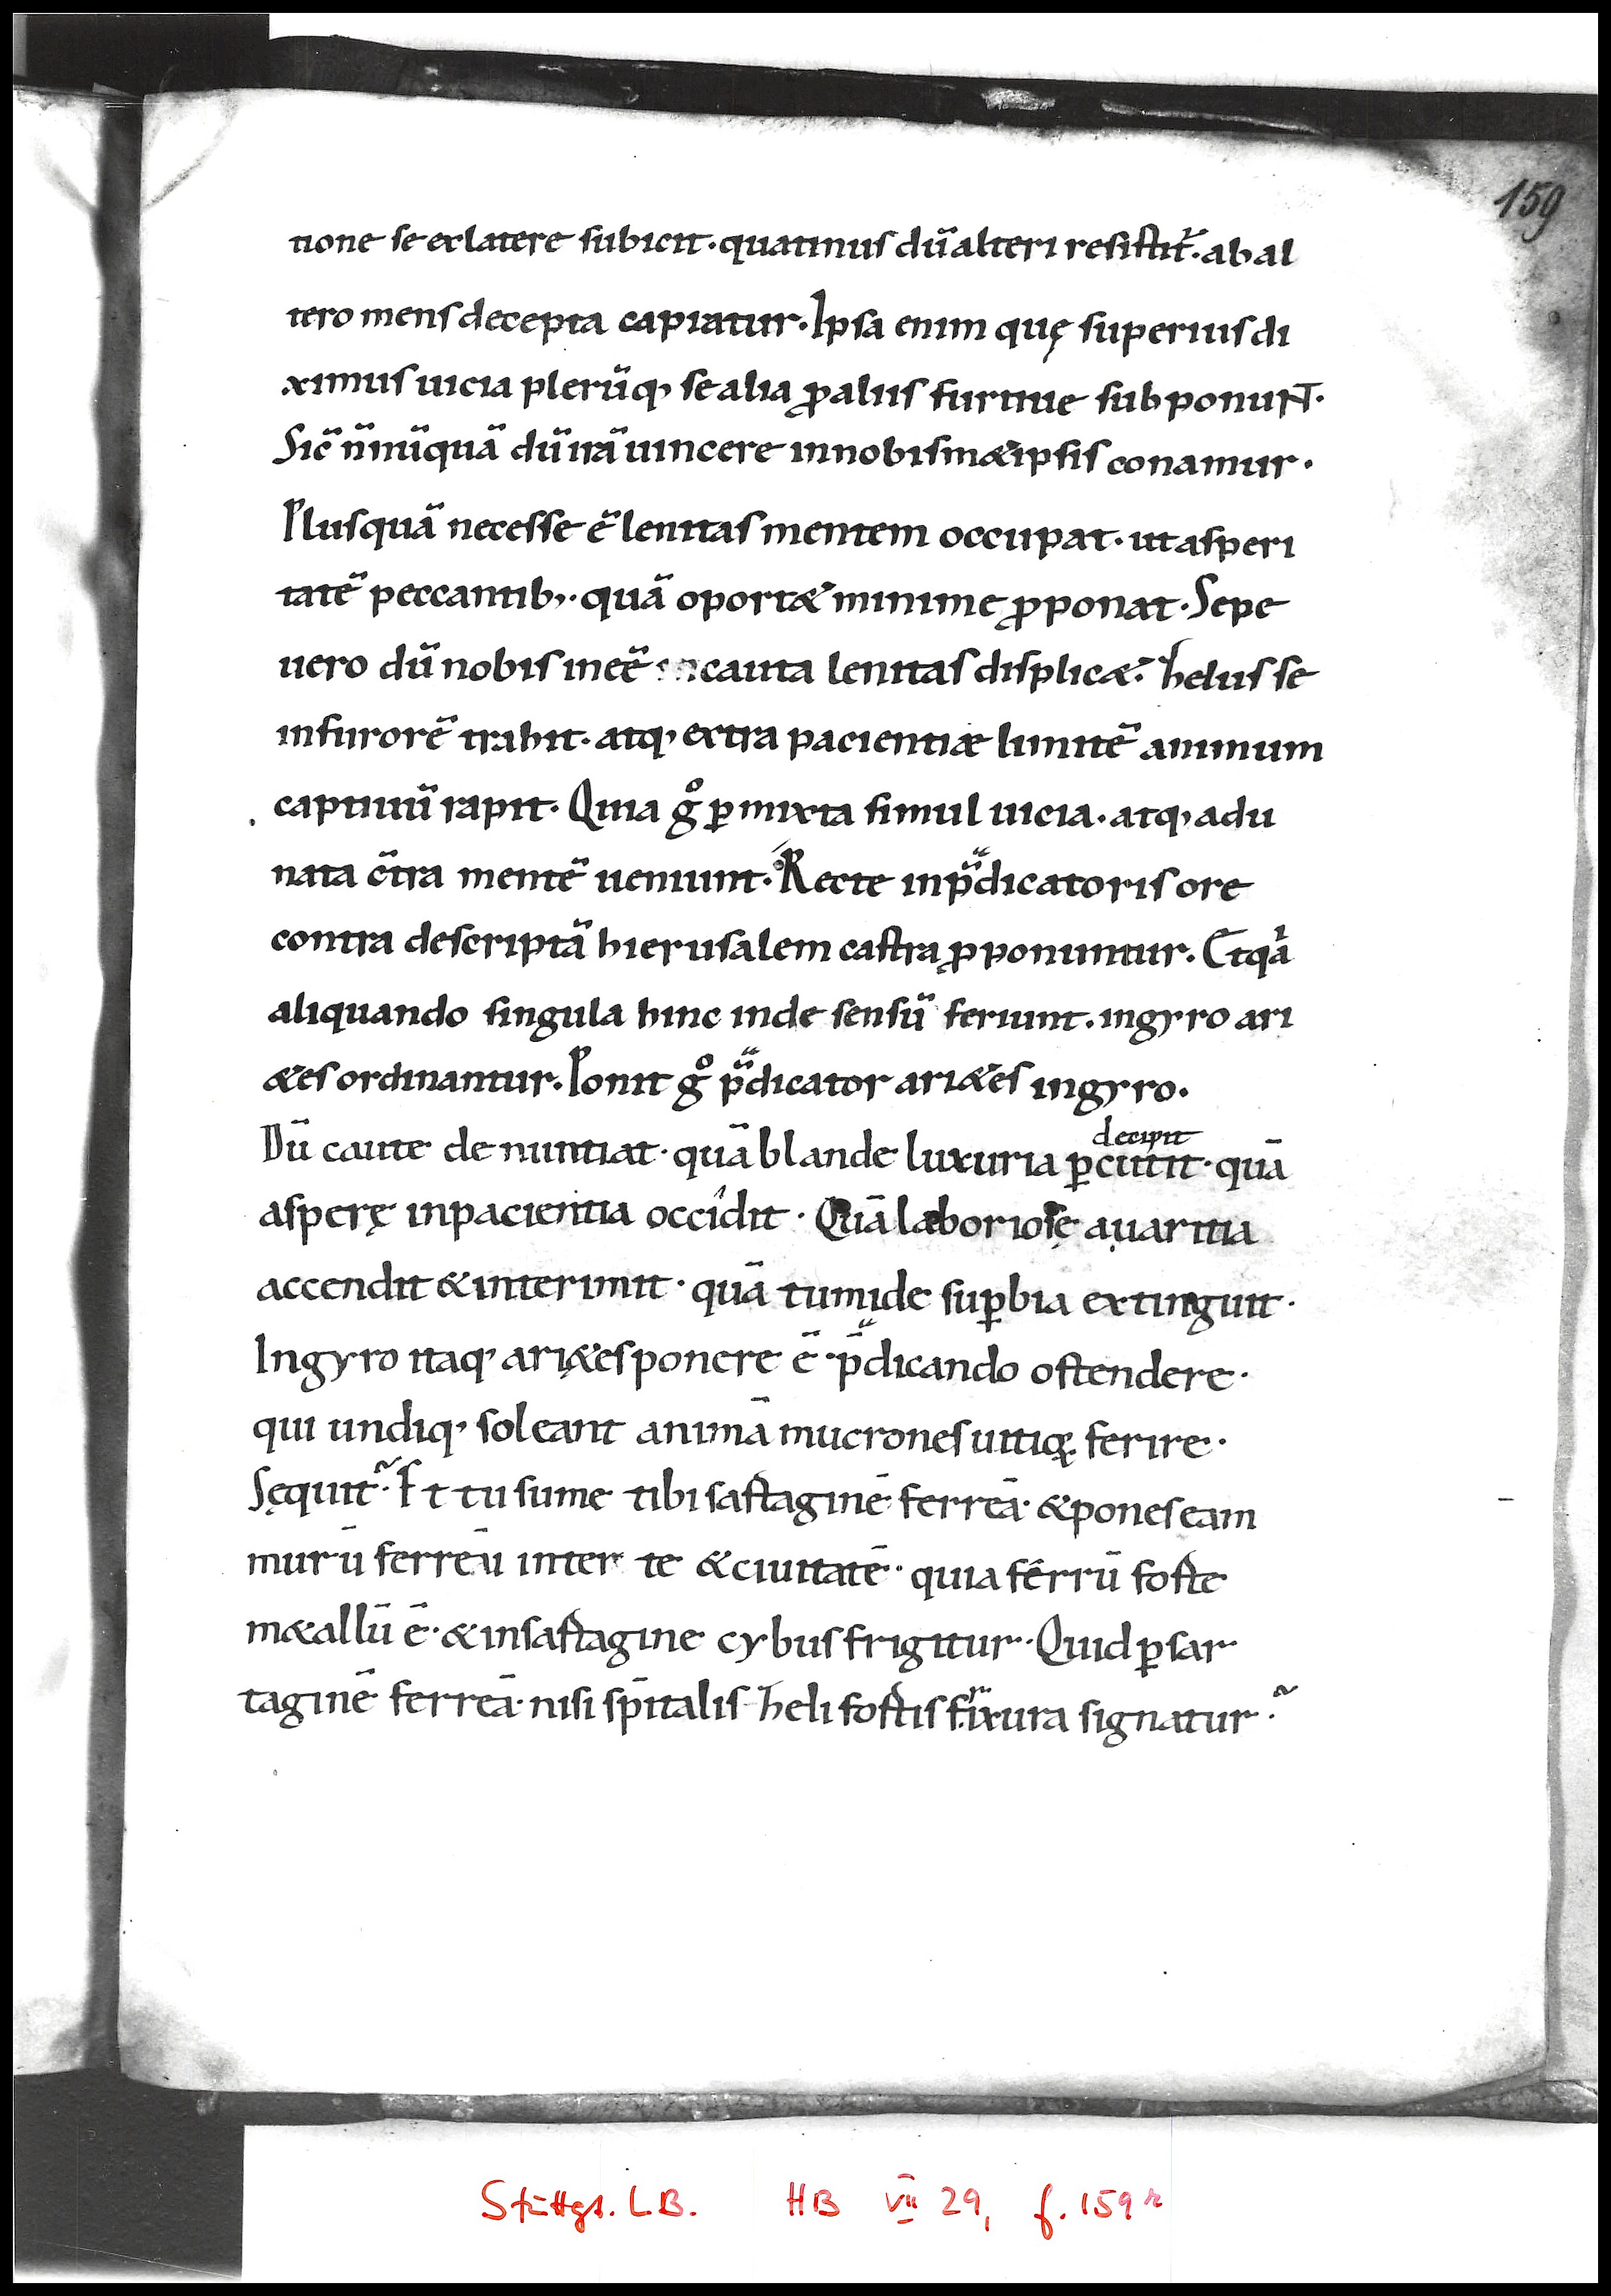 159
tione se exlatere subicit · quatinus dū alteri resistit̃ · ab al
tero mens decepta capiatur · Ipsa enim quę superius di
ximus uicia plerūq; se alia ꝓ aliis furtiue subponuNT ·
Sic̄ nn̄nūquā dū irā uincere in nobism&ipsis conamur ·
Plusquā necesse ē lenitas mentem occupat · ut asperi
tatē peccantib; · quā oport& minime ꝓponat · Sepe
uero dū nobis ineē incauta lenitas displic& · helus se
in furorē trahit · atq; extra pacientiæ limitē animum
captiuū rapit · Quia gͦ ꝑmixta simul uicia · atq; adu
nata c̄tra mentē ueniunt · Recte in p̄dicatoris ore
contra descriptā hierusalem castra ꝓponuntur · Et qͣa
aliquando singula hinc inde sensū feriunt · ingyro ari
&es ordinantur · Ponit gͦ p̄dicator ari&es ingyro ·
decipit
Dū caute denuntiat · quā blande luxuria ꝑcutit · quā
asperę inpacientia occidit · Quā laboriosę auaritia
accendit & interimit · quā tumide suꝑbia extinguit ·
Ingyro itaq; ari&es ponere ē · p̄dicando ostendere ·
qui undiq; soleant animā mucrones uitiꝗ ferire ·
Sęquit̃ · Et tu sume tibi saftaginē ferreā · & pones eam
murū ferreū inter te & ciuitatē · quia ferrū forte
m&allū ē · & insartagine cybus frigitur · Quid ꝑ sar
taginē ferreā · nisi sp̄italis heli fortis frixura signatur ·
Stuttgt. LB. HB VII 29, f. 159 r